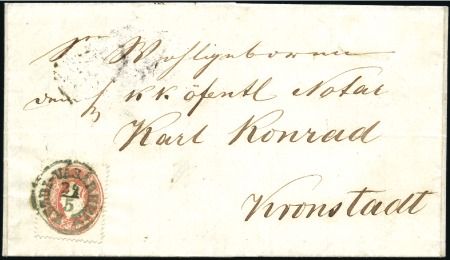 Wohlgeboren
dem k k öfentl Notar
Karl Konrad
Kronstadt
29
5